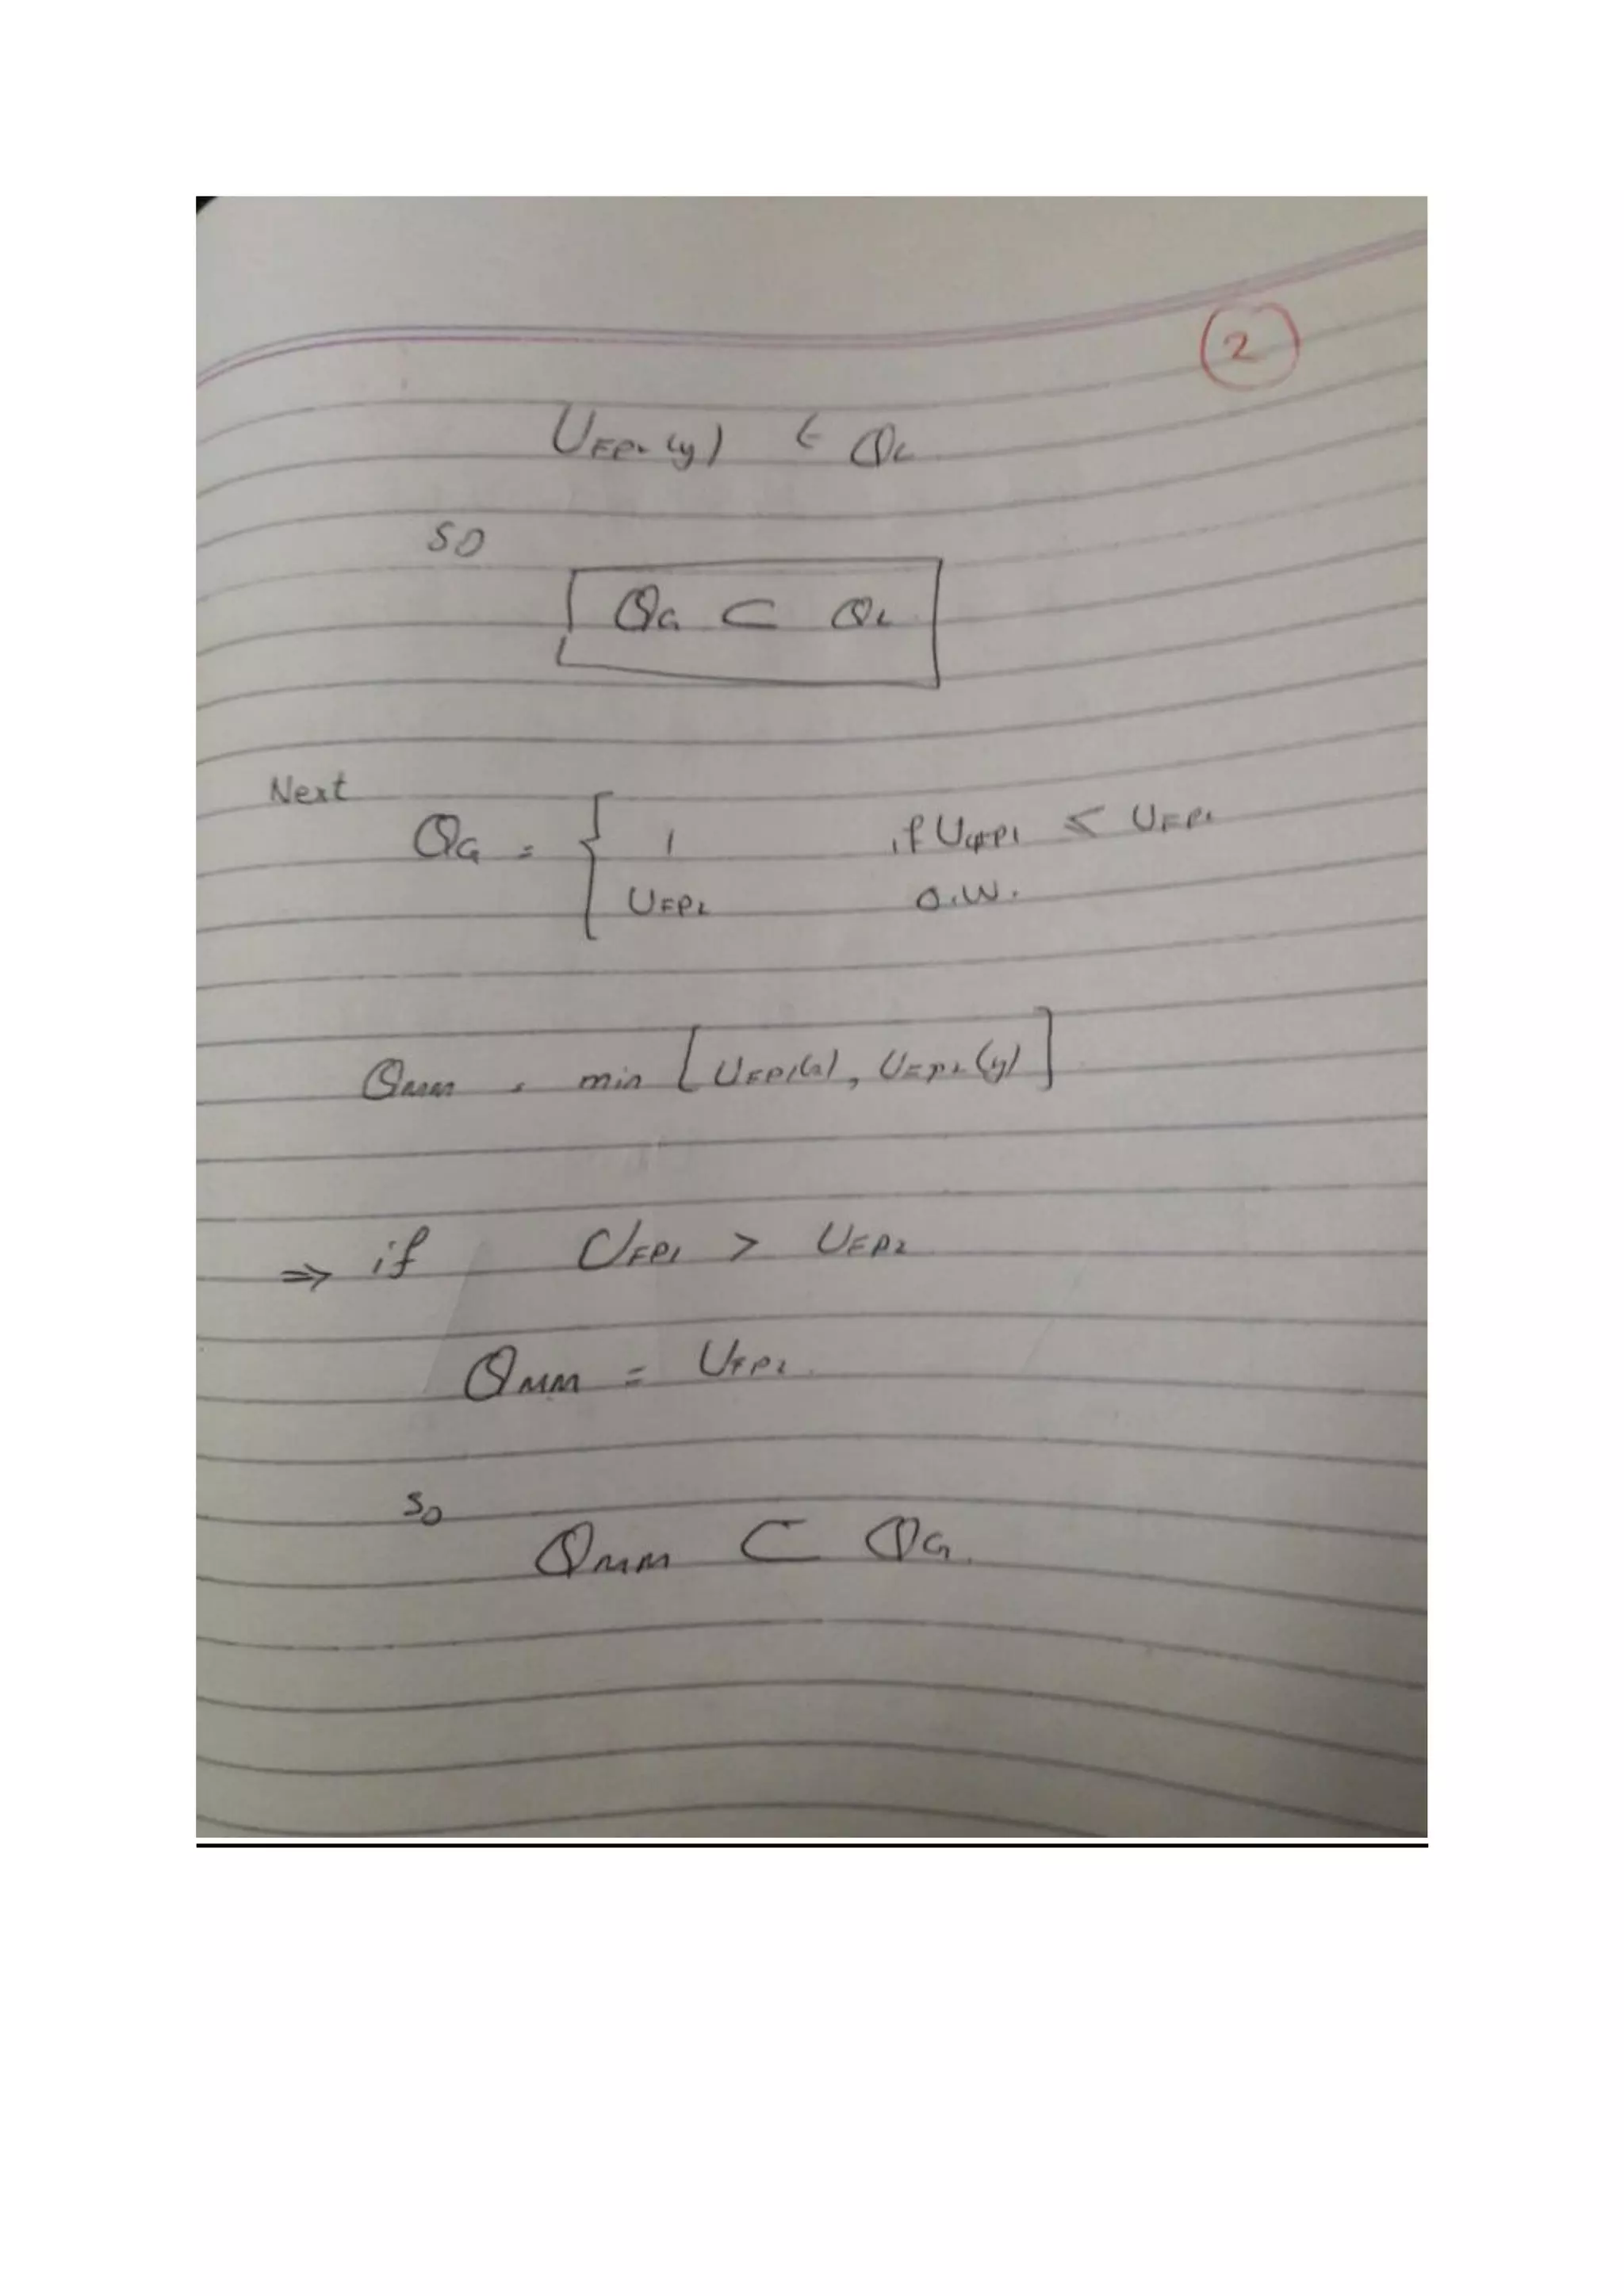 2
U_FP2(y) ∈ Q_L
SO
Q_G ⊂ Q_L
Next
Q_G = { 1 if U_FP1 ≤ U_FP2
U_FP2 o.w.
Q_MM = min [U_FP1(x), U_FP2(y)]
⇒ if U_FP1 > U_FP2
Q_MM = U_FP2
So
Q_MM ⊂ Q_G